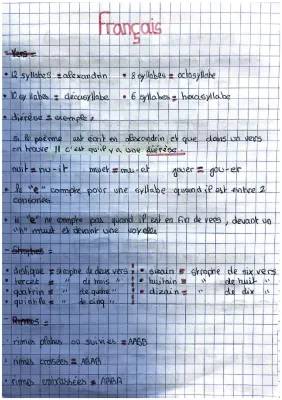 Français
- Vers -
• 12 syllabes = alexandrin • 8 syllabes = octosyllabe
• 10 syllabes = décasyllabe • 6 syllabes = hexasyllabe
• diérèse = exemple :
si le poème est écrit en alexandrin et que dans un vers
on trouve 11 c'est qu'il y a une diérèse.
nuit = nu-it muet = mu-et gouer = gou-er
• le "e" compte pour une syllabe quand il est entre 2
consones
• le "e" ne compte pas quand il est en fin de vers, devant un
"h" muet et devant une voyelle.
- Strophes -
• distique = strophe de deux vers • sizain = strophe de six vers
• tercet = " de trois " • huitain = " de huit "
• quatrin = " de quatre " • dizain = " de dix "
• quintile = " de cinq "
- Rimes -
• rimes plates ou suivies = AABB
• rimes croisées = ABAB
• rimes embrassées = ABBA